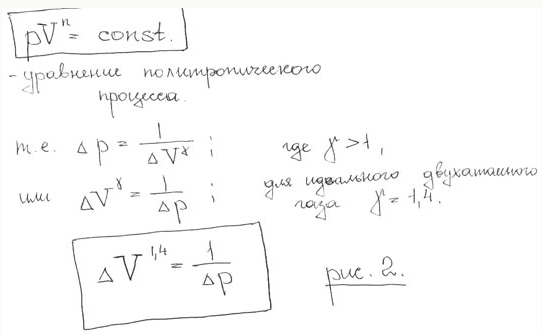 pVⁿ = const.
- уравнение политропического
процесса.
т.е. Δp = 1/ΔV^γ ; где γ > 1,
или ΔV^γ = 1/Δp ; для идеального двухатамного
газа γ = 1,4.
ΔV^1,4 = 1/Δp
рис. 2.